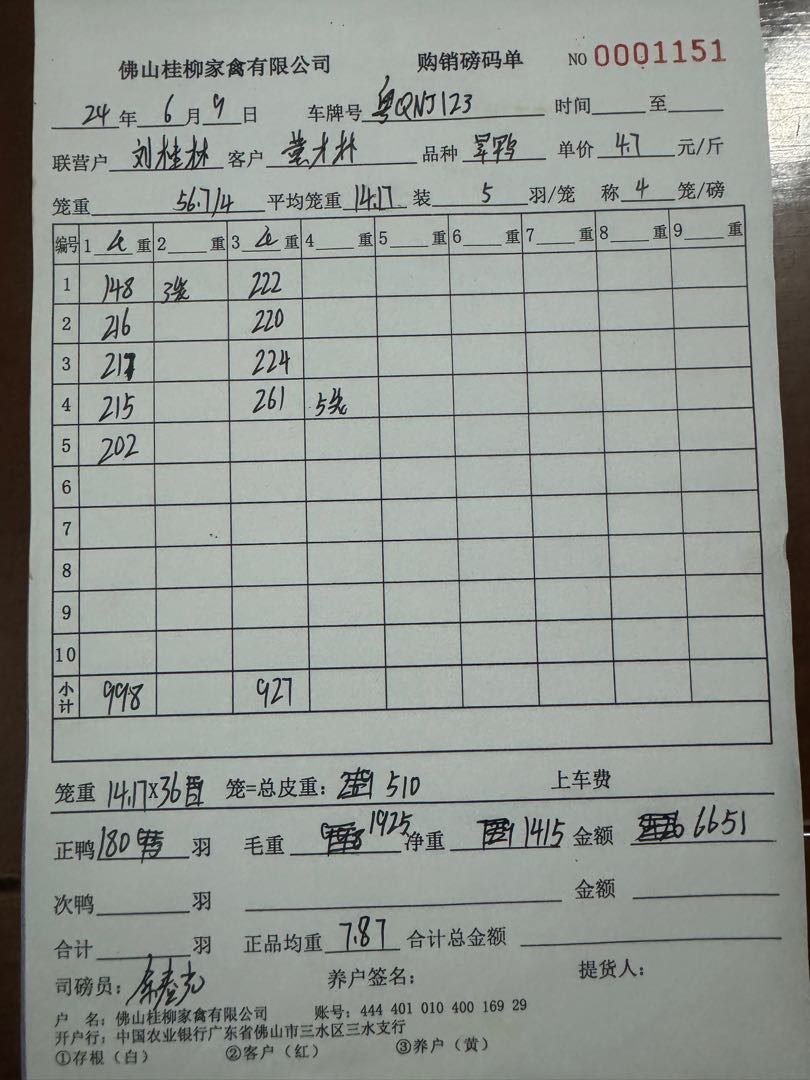 佛山桂柳家禽有限公司 购销磅码单 NO 0001151
24 年 6 月 9 日 车牌号 粤QNJ123 时间 至
联营户 刘桂林 客户 叶才林 品种 旱鸭 单价 4.7 元/斤
笼重 56.7/4 平均笼重 14.17 装 5 羽/笼 称 4 笼/磅
编号 1 重 2 重 3 重 4 重 5 重 6 重 7 重 8 重 9 重
1 148 3笼 222
2 216 220
3 217 224
4 215 261 5笼
5 202
6
7
8
9
10
小计 998 927
笼重 14.17×36 笼=总皮重: 510 上车费
正鸭 180 羽 毛重 1925 净重 1415 金额 6651
次鸭 羽 金额
合计 羽 正品均重 7.87 合计总金额
司磅员: 养户签名: 提货人:
户 名: 佛山桂柳家禽有限公司 账号: 444 401 010 400 169 29
开户行: 中国农业银行广东省佛山市三水区三水支行
①存根(白) ②客户(红) ③养户(黄)